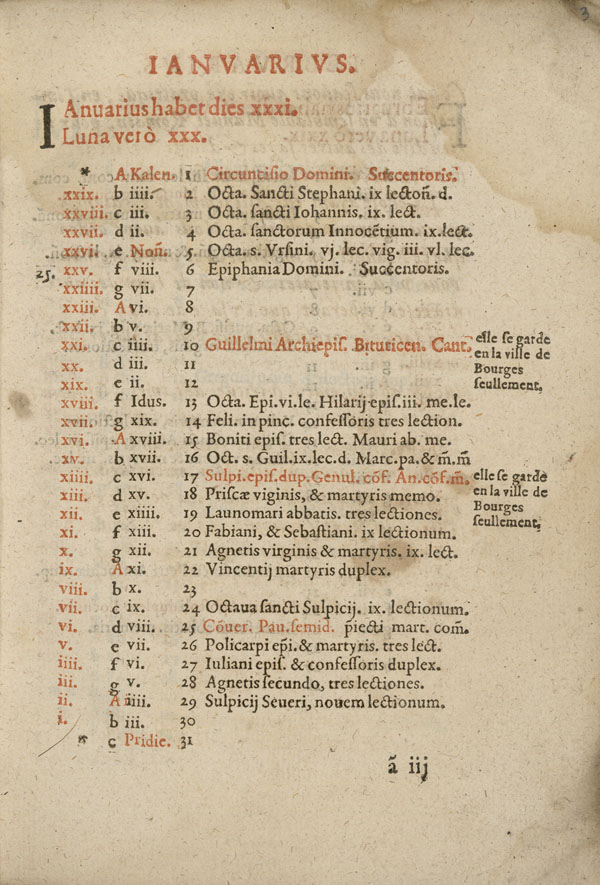 3
IANVARIVS.
IAnuarius habet dies xxxi.
Luna verò xxx.
* A Kalen. 1 Circuncisio Domini. Succentoris.
xxix. b iiii. 2 Octa. Sancti Stephani. ix lectoñ. d.
xxviii. c iii. 3 Octa. sancti Iohannis. ix. lect.
xxvii. d ii. 4 Octa. sanctorum Innocẽtium. ix. lect.
xxvi. e Noñ. 5 Octa. s. Vrsini. vj. lec. vig. iii. vl. lec.
25. xxv. f viii. 6 Epiphania Domini. Succentoris.
xxiiii. g vii. 7
xxiii. A vi. 8
xxii. b v. 9
xxi. c iiii. 10 Guillelmi Archiepis. Bituricen. Cant. elle se garde
en la ville de
Bourges
seullement.
xx. d iii. 11
xix. e ii. 12
xviii. f Idus. 13 Octa. Epi. vi. le. Hilarij epis. iii. me. le.
xvii. g xix. 14 Feli. in pinc. confessoris tres lection.
xvi. A xviii. 15 Boniti epis. tres lect. Mauri ab. me.
xv. b xvii. 16 Oct. s. Guil. ix. lec. d. Marc. pa. & m̃. m̃
xiiii. c xvi. 17 Sulpi. epis. dup. Genul. cõf. An. cõf. m̃. elle se garde
en la ville de
Bourges
seullement,
xiii. d xv. 18 Priscæ viginis, & martyris memo.
xii. e xiiii. 19 Launomari abbatis. tres lectiones.
xi. f xiii. 20 Fabiani, & Sebastiani. ix lectionum.
x. g xii. 21 Agnetis virginis & martyris. ix. lect.
ix. A xi. 22 Vincentij martyris duplex.
viii. b x. 23
vii. c ix. 24 Octaua sancti Sulpicij. ix. lectionum.
vi. d viii. 25 Cõuer. Pau. semid. p̃iecti mart. com̃.
v. e vii. 26 Policarpi ep̃i. & martyris. tres lect.
iiii. f vi. 27 Iuliani epis. & confessoris duplex.
iii. g v. 28 Agnetis secundo, tres lectiones.
ii. A iiii. 29 Sulpicij Seueri, nouem lectionum.
i. b iii. 30
* c Pridie. 31
ã iij